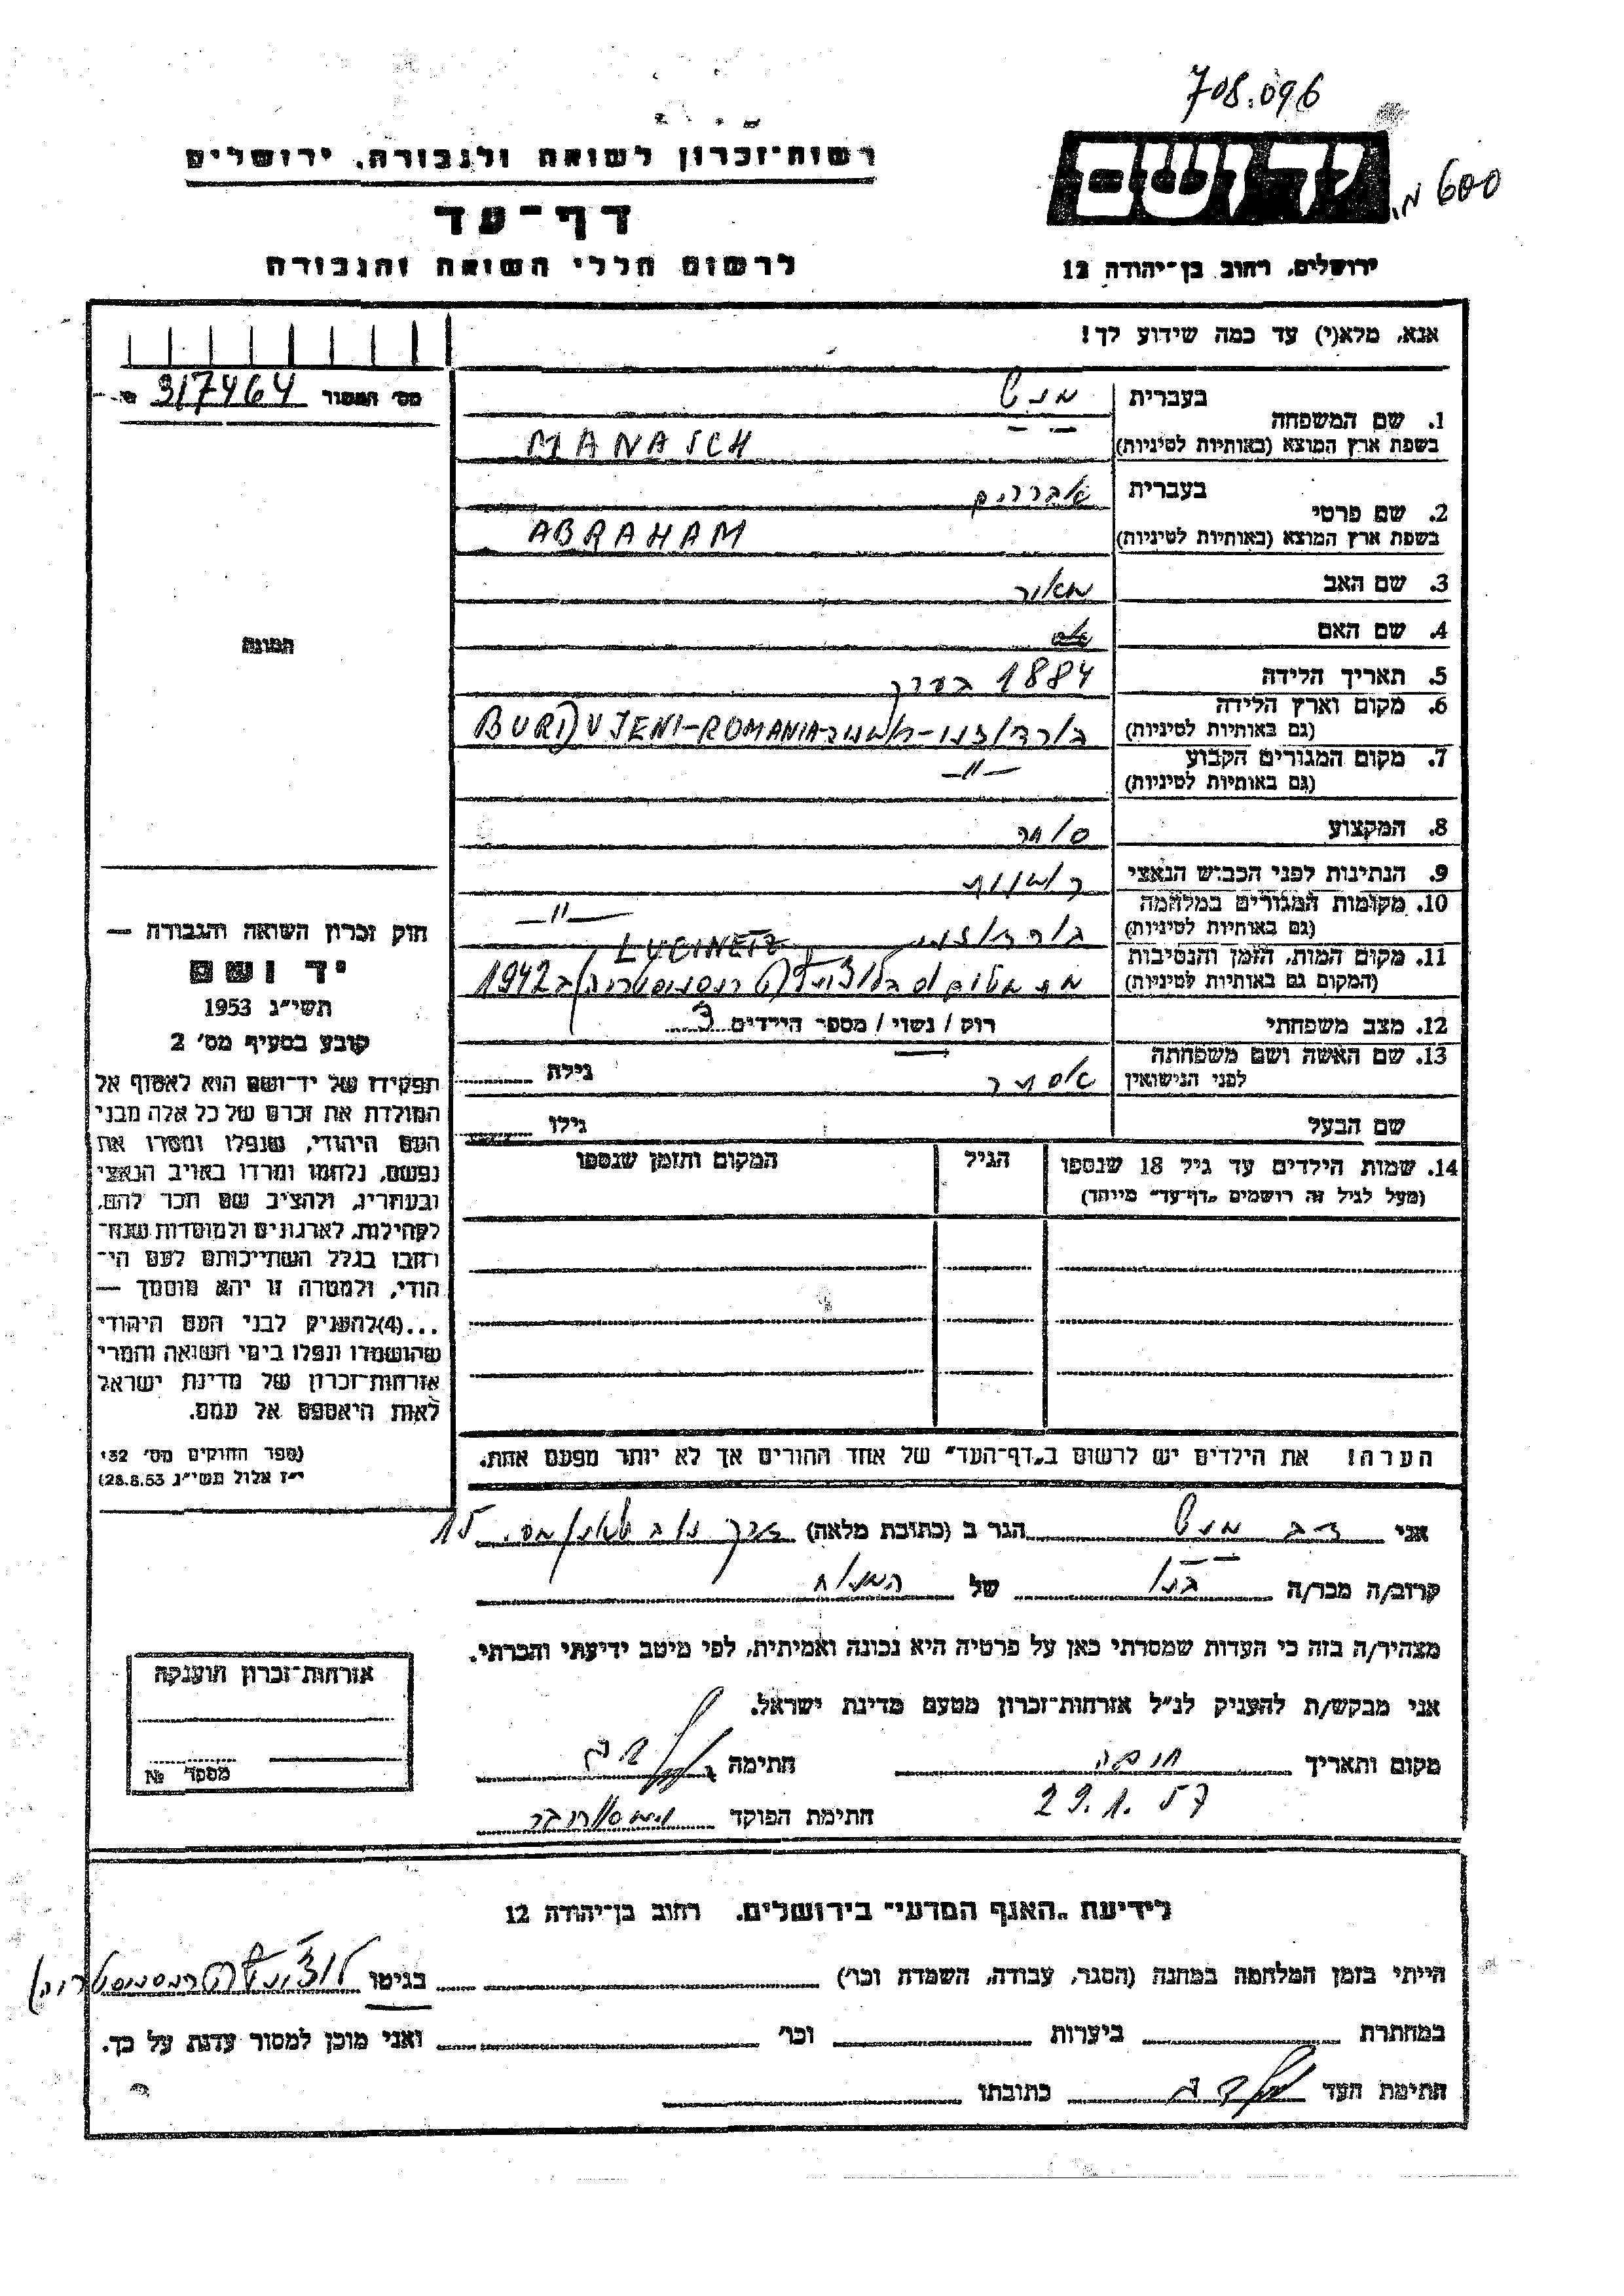 708.096
רשות־זכרון לשואה ולגבורה, ירושלים
יד ושם
600
דף־עד
לרשום חללי השואה והגבורה
ירושלים, רחוב בן־יהודה 12
אנא, מלא(י) עד כמה שידוע לך!
מס׳ המסור 317464
1. שם המשפחה
בעברית מנש
בשפת ארץ המוצא (באותיות לטיניות) MANASCH
2. שם פרטי
בעברית אברהם
בשפת ארץ המוצא (באותיות לטיניות) ABRAHAM
3. שם האב מאור
4. שם האם
תמונה
5. תאריך הלידה 1884 בערך
6. מקום וארץ הלידה
(גם באותיות לטיניות) בורדוזני-רומניה BURDUJENI-ROMANIA
7. מקום המגורים הקבוע —"—
(גם באותיות לטיניות)
8. המקצוע סוחר
9. הנתינות לפני הכבוש הנאצי רומנית
10. מקומות המגורים במלחמה —"—
(גם באותיות לטיניות) בורדוזני
11. מקום המות, הזמן והנסיבות LUCINETZ
(המקום גם באותיות לטיניות) מת מטיפוס בלוצינץ (טרנסניסטריה) ב 1942
12. מצב משפחתי רוק / נשוי / מספר הילדים 3
13. שם האשה ושם משפחתה
לפני הנישואין אסתר גילה
שם הבעל גילו
14. שמות הילדים עד גיל 18 שנספו הגיל המקום והזמן שנספו
(מעל לגיל זה רושמים „דף־עד״ מיוחד)
חוק זכרון השואה והגבורה —
יד ושם
תשי״ג 1953
קובע בסעיף מס׳ 2
תפקידו של יד־ושם הוא לאסוף אל
המולדת את זכרם של כל אלה מבני
העם היהודי, שנפלו ומסרו את
נפשם, נלחמו ומרדו באויב הנאצי
ובעוזריו, ולהציב שם וזכר להם,
לקהילות, לארגונים ולמוסדות שנח־
רבו בגלל השתייכותם לעם הי־
הודי, ולמטרה זו יהא מוסמך —
...(4)להעניק לבני העם היהודי
שהושמדו ונפלו בימי השואה והמרי
אזרחות־זכרון של מדינת ישראל
לאות היאספם אל עמם.
(ספר החוקים מס׳ 132
י״ז אלול תשי״ג 28.8.53)
הערה! את הילדים יש לרשום ב„דף־העד״ של אחד ההורים אך לא יותר מפעם אחת.
אני דב מנש הגר ב (כתובת מלאה) 15
קרוב/ה מכר/ה בנו של המנוח
מצהיר/ה בזה כי העדות שמסרתי כאן על פרטיה היא נכונה ואמיתית, לפי מיטב ידיעתי והכרתי.
אני מבקש/ת להעניק לנ״ל אזרחות־זכרון מטעם מדינת ישראל.
מקום ותאריך חיפה חתימה
29.1.57
חתימת הפוקד
אזרחות־זכרון הוענקה
מספר №
לידיעת „האגף המדעי״ בירושלים, רחוב בן־יהודה 12
הייתי בזמן המלחמה במחנה (הסגר, עבודה, השמדה וכו׳) בגיטו לוצינץ (טרנסניסטריה)
במחתרת ביערות וכו׳ ואני מוכן למסור עדות על כך.
חתימת העד כתובתו